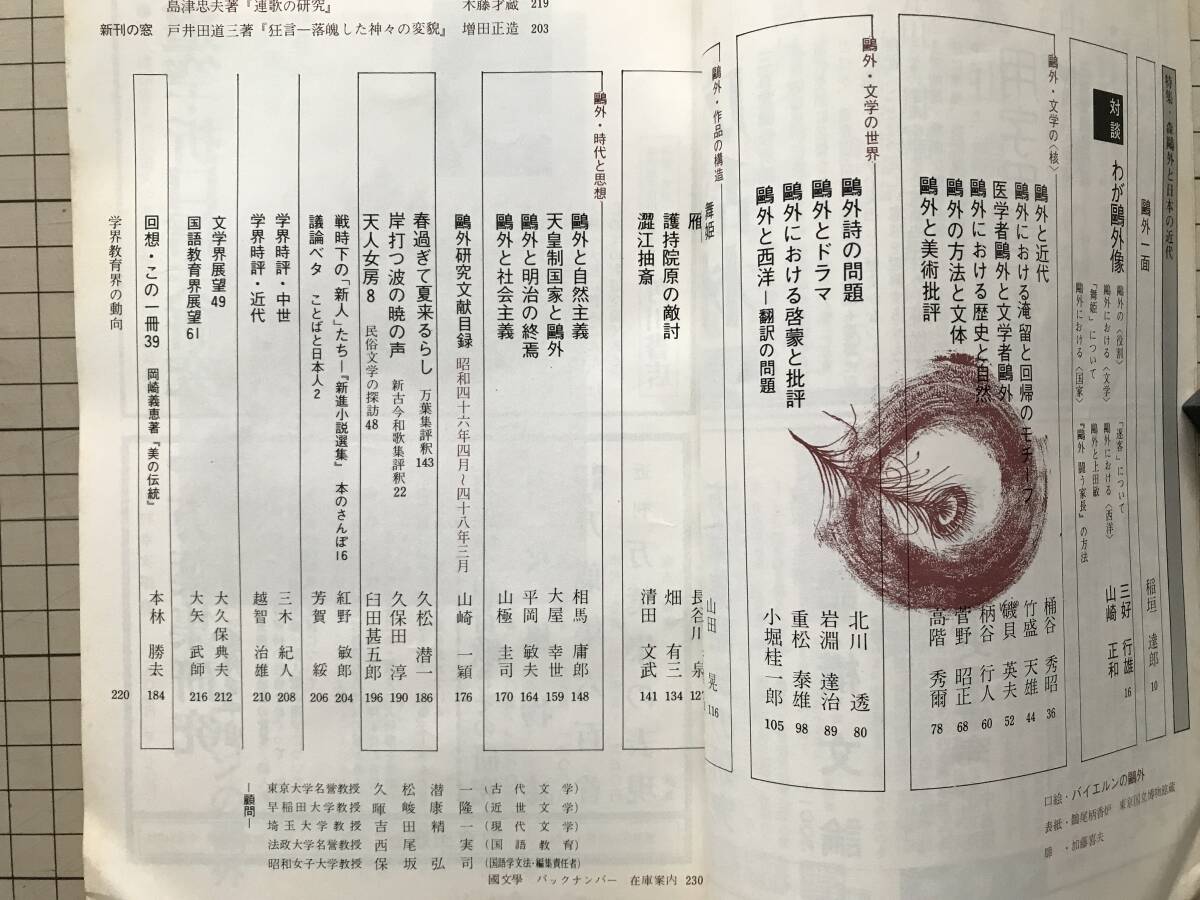 特集・森鷗外と日本の近代
鷗外一面 稲垣 達郎 10
対談 わが鷗外像 三好 行雄 山崎 正和 16
鷗外の〈役割〉
鷗外における〈文学〉
『舞姫』について
鷗外における〈国家〉
「逐客」について
鷗外における〈西洋〉
鷗外と上田敏
『鷗外 闘う家長』の方法
鷗外・文学の〈核〉
鷗外と近代 桶谷 秀昭 36
鷗外における淹留と回帰のモチーフ 竹盛 天雄 44
医学者鷗外と文学者鷗外 磯貝 英夫 52
鷗外における歴史と自然 柄谷 行人 60
鷗外の方法と文体 菅野 昭正 68
鷗外と美術批評 高階 秀爾 78
鷗外・文学の世界
鷗外詩の問題 北川 透 80
鷗外とドラマ 岩淵 達治 89
鷗外における啓蒙と批評 重松 泰雄 98
鷗外と西洋―翻訳の問題 小堀桂一郎 105
鷗外・作品の構造
舞姫 山田 晃 116
雁 長谷川 泉
護持院原の敵討 畑 有三 134
澀江抽斎 清田 文武 141
鷗外・時代と思想
鷗外と自然主義 相馬 庸郎 148
天皇制国家と鷗外 大屋 幸世 159
鷗外と明治の終焉 平岡 敏夫 164
鷗外と社会主義 山極 圭司 170
鷗外研究文献目録 昭和四十六年四月〜四十八年三月 山崎 一穎 176
春過ぎて夏来るらし 万葉集評釈143 久松 潜一 186
岸打つ波の暁の声 新古今和歌集評釈22 久保田 淳 190
天人女房8 民俗文学の探訪48 臼田甚五郎 196
戦時下の「新人」たち―『新進小説選集』 本のさんぽ16 紅野 敏郎 204
議論ベタ ことばと日本人2 芳賀 綏 206
学界時評・中世 三木 紀人 208
学界時評・近代 越智 治雄 210
文学界展望49 大久保典夫 212
国語教育界展望61 大矢 武師 216
回想・この一冊39 岡崎義恵著『美の伝統』 本林 勝夫 184
学界教育界の動向 220
島津忠夫著『連歌の研究』 木藤才蔵 219
新刊の窓 戸井田道三著『狂言―落魄した神々の変貌』 増田正造 203
―顧問―
東京大学名誉教授 久松潜一(古代文学)
早稲田大学教授 暉峻康隆(近世文学)
埼玉大学教授 吉田精一(現代文学)
法政大学名誉教授 西尾実(国語教育)
昭和女子大学教授 保坂弘司(国語学文法・編集責任者)
國文學 バックナンバー 在庫案内 230
口絵・バイエルンの鷗外
表紙・鵲尾柄香炉 東京国立博物館蔵
扉・加藤喜夫